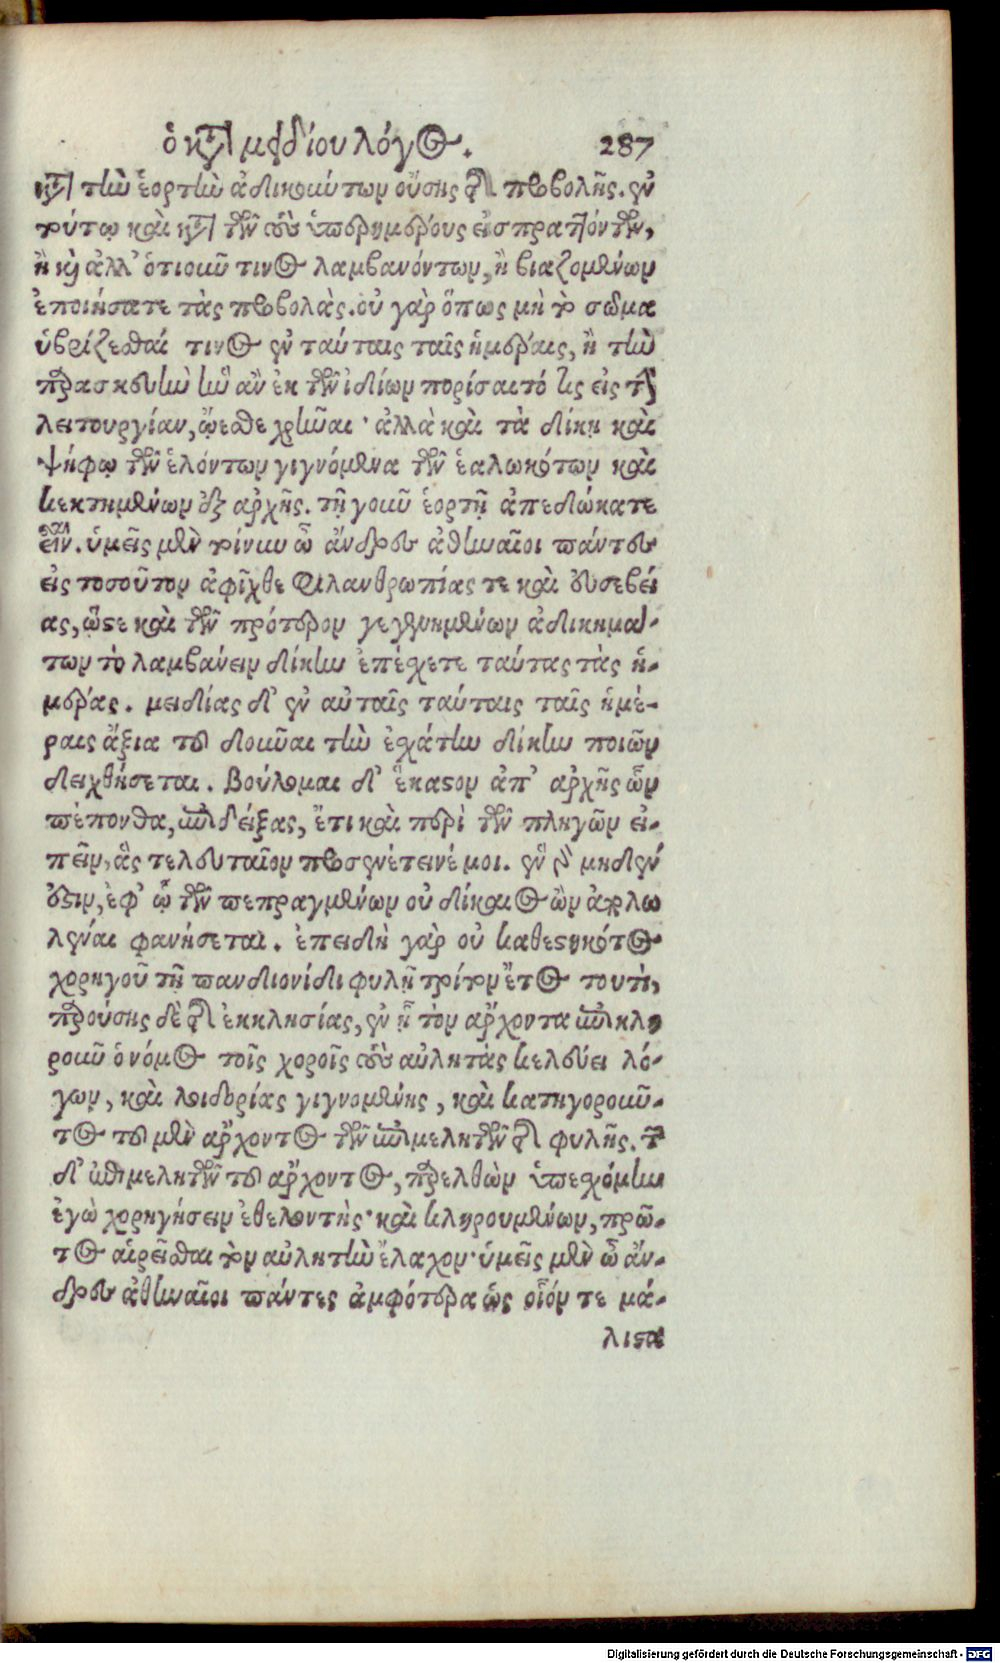 ὁ κατὰ μειδίου λόγος. 287
κατὰ τὴν ἑορτὴν ἀδικούντων οὔσης τῆς προβολῆς. ἐν
τούτῳ καὶ κατὰ τῶν τοὺς ὑπερημέρους εἰσπραττόντων,
ἢ καὶ ἄλλ' ὁτιοῦν τινος λαμβανόντων, ἢ βιαζομένων
ἐποιήσατε τὰς προβολὰς. οὐ γὰρ ὅπως μὴ τὸ σῶμα
ὑβρίζεσθαί τινος ἐν ταύταις ταῖς ἡμέραις, ἢ τὴν
παρασκευὴν ἣν ἂν ἐκ τῶν ἰδίων πορίσαιτό τις εἰς τὴν
λειτουργίαν, ᾤεσθε χρῆναι· ἀλλὰ καὶ τὰ δίκῃ καὶ
ψήφῳ τῶν ἑλόντων γιγνόμενα τῶν ἑαλωκότων καὶ
κεκτημένων ἐξ ἀρχῆς. τῇ γοῦν ἑορτῇ ἀπεδώκατε
εἶναι. ὑμεῖς μὲν τοίνυν ὦ ἄνδρες ἀθηναῖοι πάντες
εἰς τοσοῦτον ἀφῖχθε φιλανθρωπίας τε καὶ εὐσεβεί
ας, ὥστε καὶ τῶν πρότερον γεγενημένων ἀδικημά-
των τὸ λαμβάνειν δίκην ἐπέσχετε ταύτας τὰς ἡ-
μέρας. μειδίας δ' ἐν αὐταῖς ταύταις ταῖς ἡμέ-
ραις ἄξια τοῦ δοῦναι τὴν ἐσχάτην δίκην ποιῶν
δειχθήσεται. Βούλομαι δ' ἕκαστον ἀπ' ἀρχῆς ὧν
πέπονθα, ἐπιδείξας, ἔτι καὶ περὶ τῶν πληγῶν εἰ-
πεῖν, ἃς τελευταῖον προσενέτεινέ μοι. ἓν γὰρ μηδὲν
ἔστιν, ἐφ' ᾧ τῶν πεπραγμένων οὐ δίκαιος ὢν ἀπολω
λέναι φανήσεται. ἐπειδὴ γὰρ οὐ καθεστηκότος
χορηγοῦ τῇ πανδιονίδι φυλῇ τρίτον ἔτος τουτὶ,
παρούσης δὲ τῆς ἐκκλησίας, ἐν ᾗ τὸν ἄρχοντα ἐπικλη
ροῦν ὁ νόμος τοῖς χοροῖς τοὺς αὐλητὰς κελεύει λό-
γων, καὶ λοιδορίας γιγνομένης, καὶ κατηγοροῦν-
τος τοῦ μὲν ἄρχοντος τῶν ἐπιμελητῶν τῆς φυλῆς. τῶν
δ' ἐπιμελητῶν τοῦ ἄρχοντος, παρελθὼν ὑπεσχόμην
ἐγὼ χορηγήσειν ἐθελοντὴς· καὶ κληρουμένων, πρῶ-
τος αἱρεῖσθαι τὸν αὐλητὴν ἔλαχον· ὑμεῖς μὲν ὦ ἄν-
δρες ἀθηναῖοι πάντες ἀμφότερα ὡς οἷόν τε μά-
λιστα
Digitalisierung gefördert durch die Deutsche Forschungsgemeinschaft - DFG